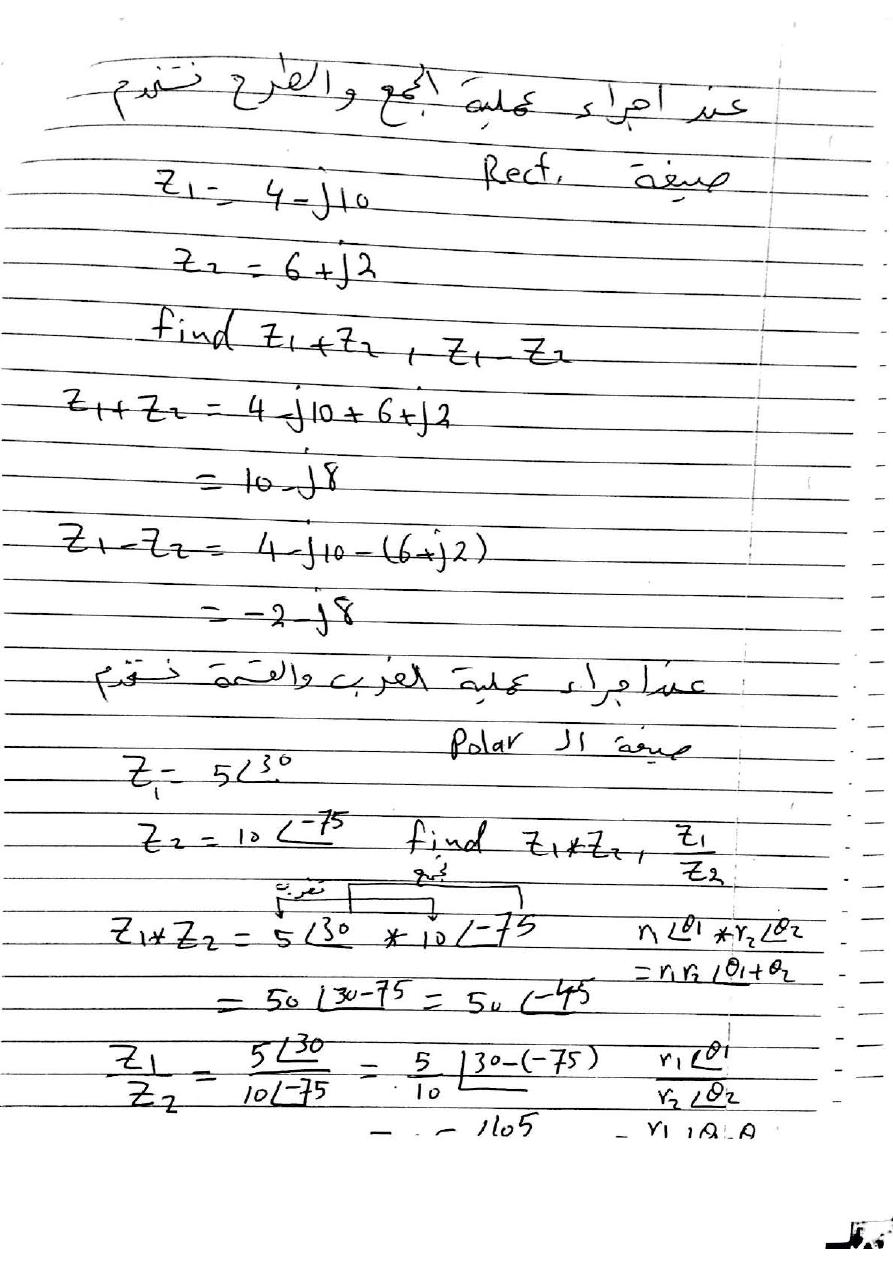 عند اجراء عملية الجمع والطرح نستخدم
صيغة Rect.
Z1 = 4-j10
Z2 = 6+j2
find Z1+Z2 , Z1-Z2
Z1+Z2 = 4-j10+6+j2
= 10-j8
Z1-Z2 = 4-j10-(6+j2)
= -2-j8
عند اجراء عملية الضرب والقسمة نستخدم
صيغة ال Polar
Z1 = 5∠30
Z2 = 10∠-75 find Z1*Z2, Z1/Z2
نضرب نجمع
Z1*Z2 = 5∠30 * 10∠-75 r1∠θ1 * r2∠θ2
= r1r2∠θ1+θ2
= 50∠30-75 = 50∠-45
Z1/Z2 = 5∠30/10∠-75 = 5/10 ∠30-(-75) r1∠θ1/r2∠θ2